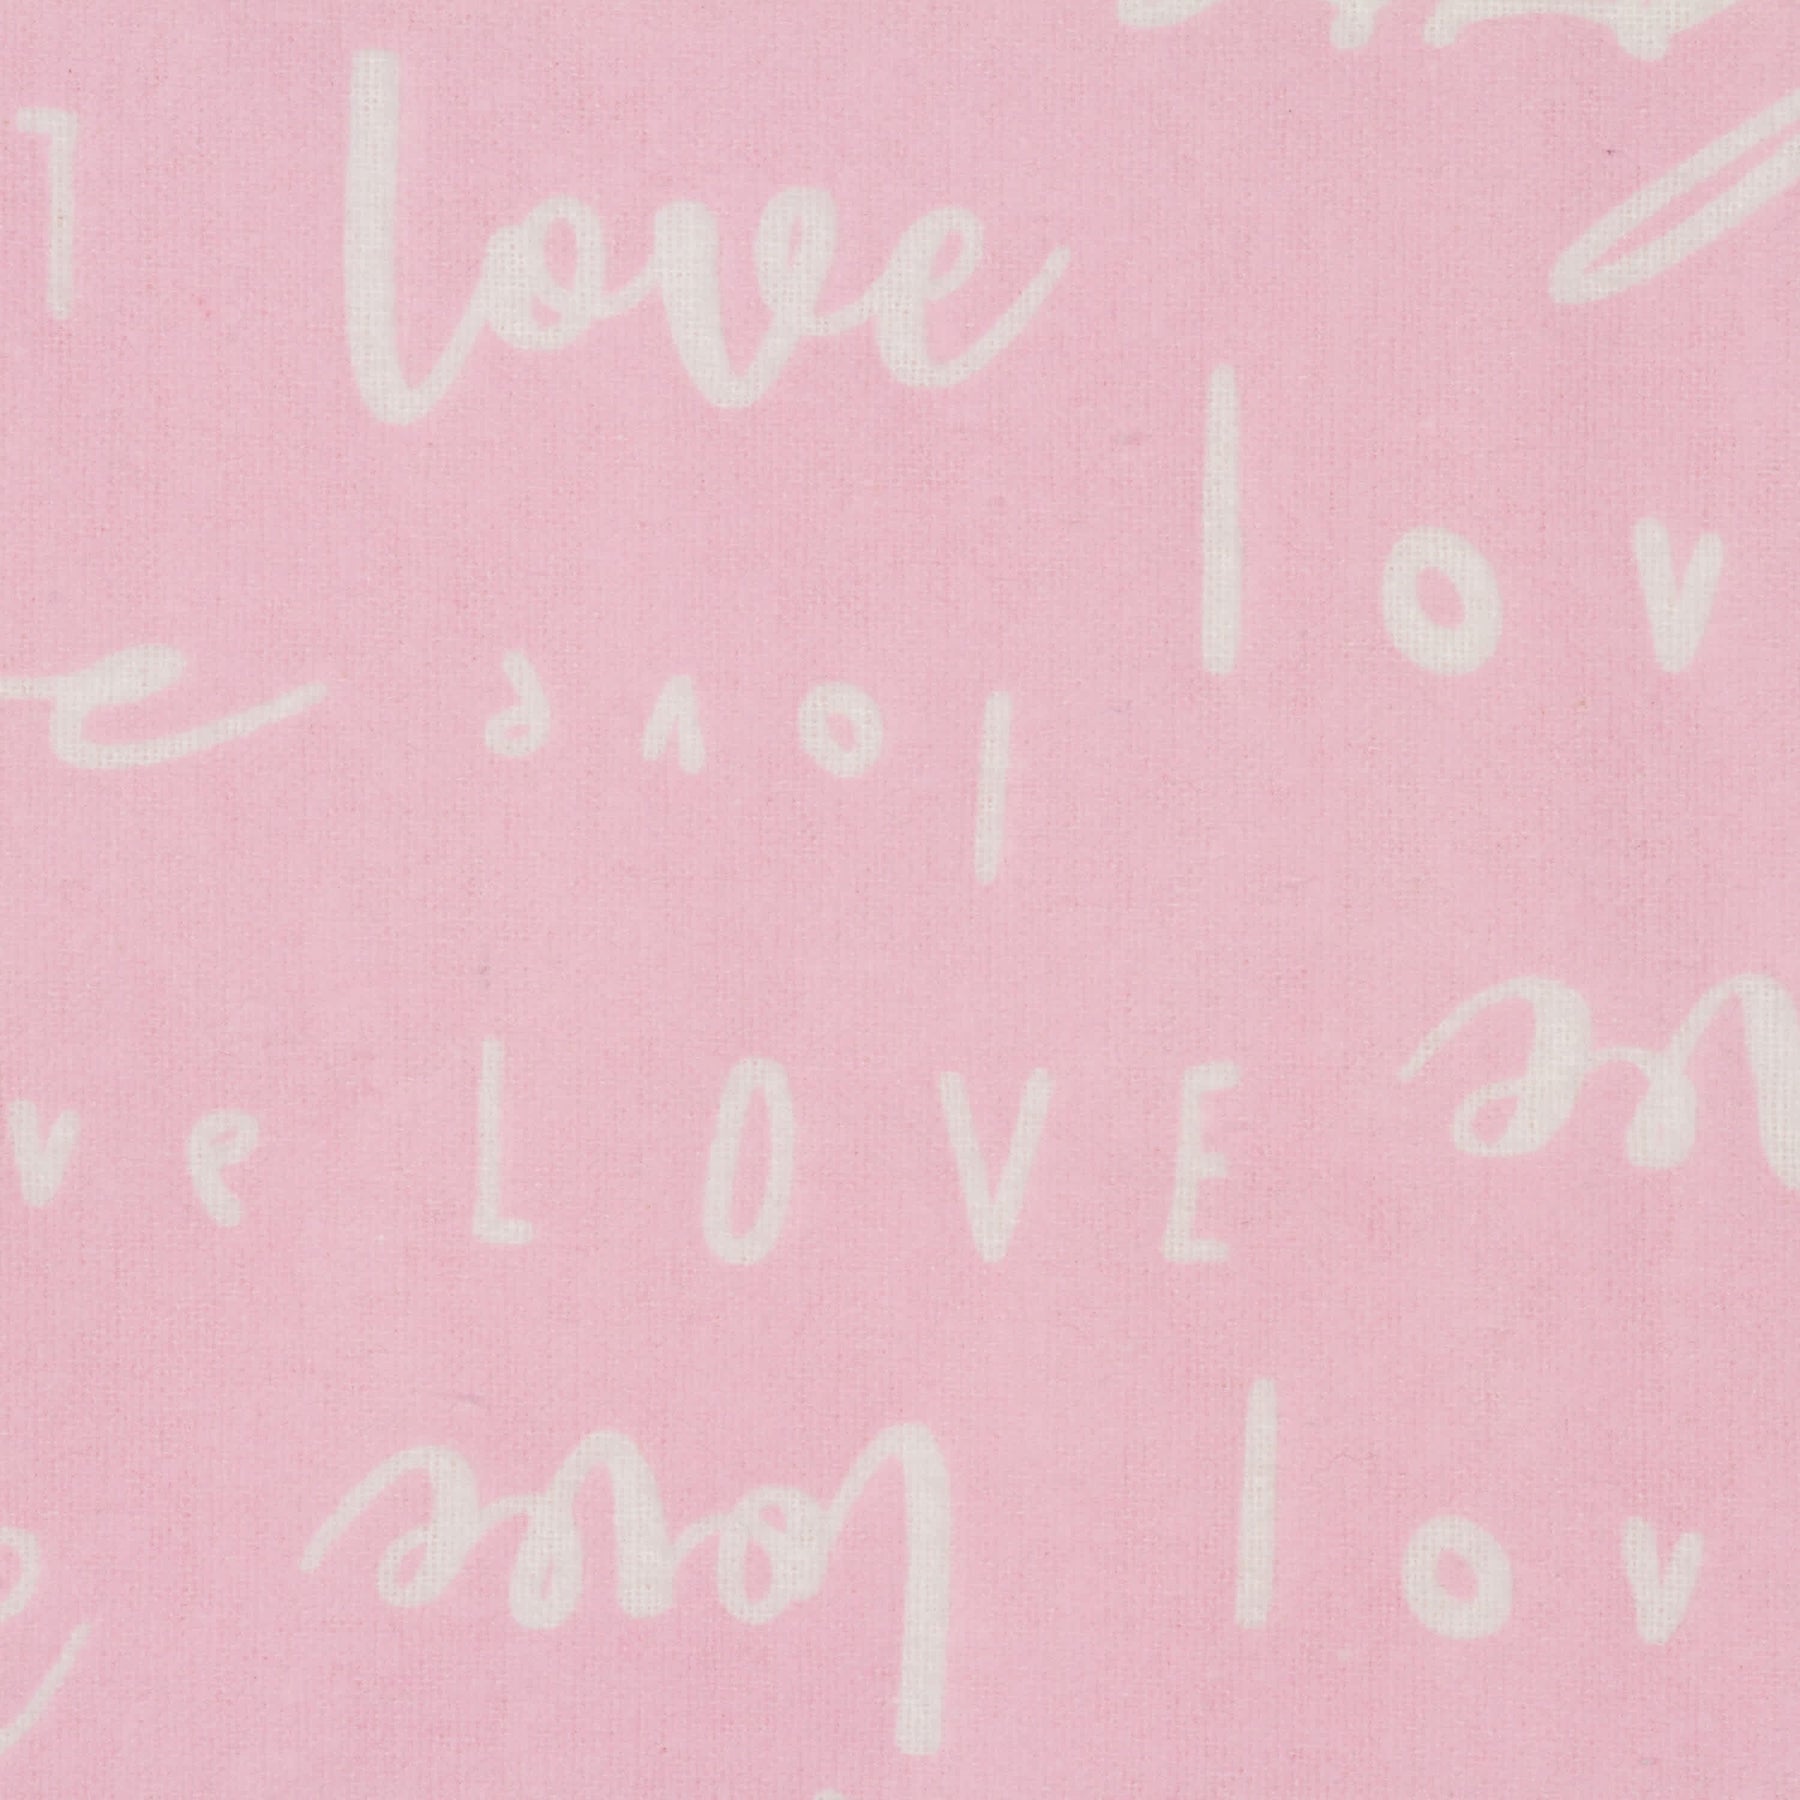 love
lov
love
ve LOVE
love
lov